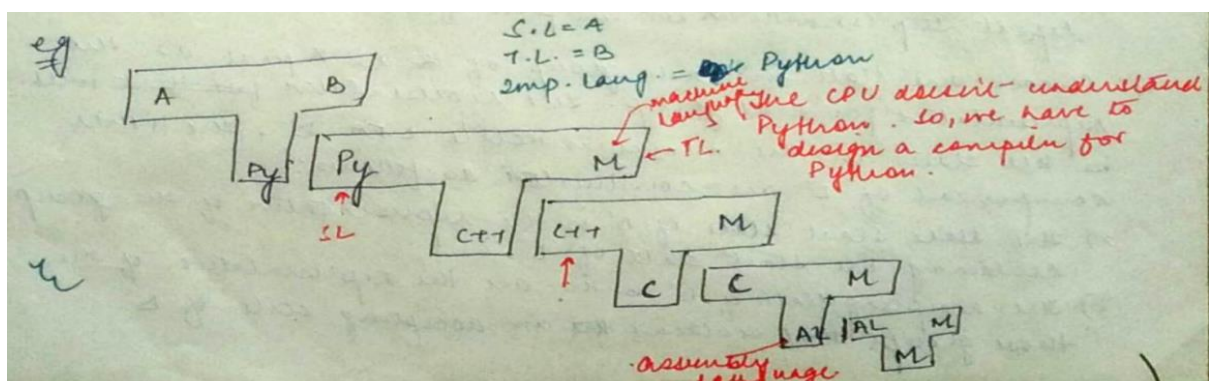 eg
S.L = A
T.L. = B
Imp. Lang. = Python
A B
Py
machine
language
The CPU doesn't understand
Python. So, we have to
design a compiler for
Python.
Py M ← TL.
SL
C++
C++ M
C
C M
AL
AL M
M
assembly
language